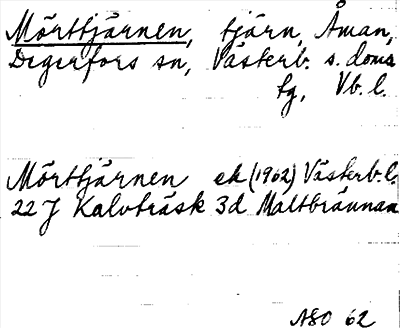 Mörttjärnen, tjärn, Åman,
Degerfors sn, Västerb. s. doms
fg, Vb. l.
Mörttjärnen ek (1962) Västerb. l.
22 J Kalvträsk 3d Maltbrännan
ASO 62